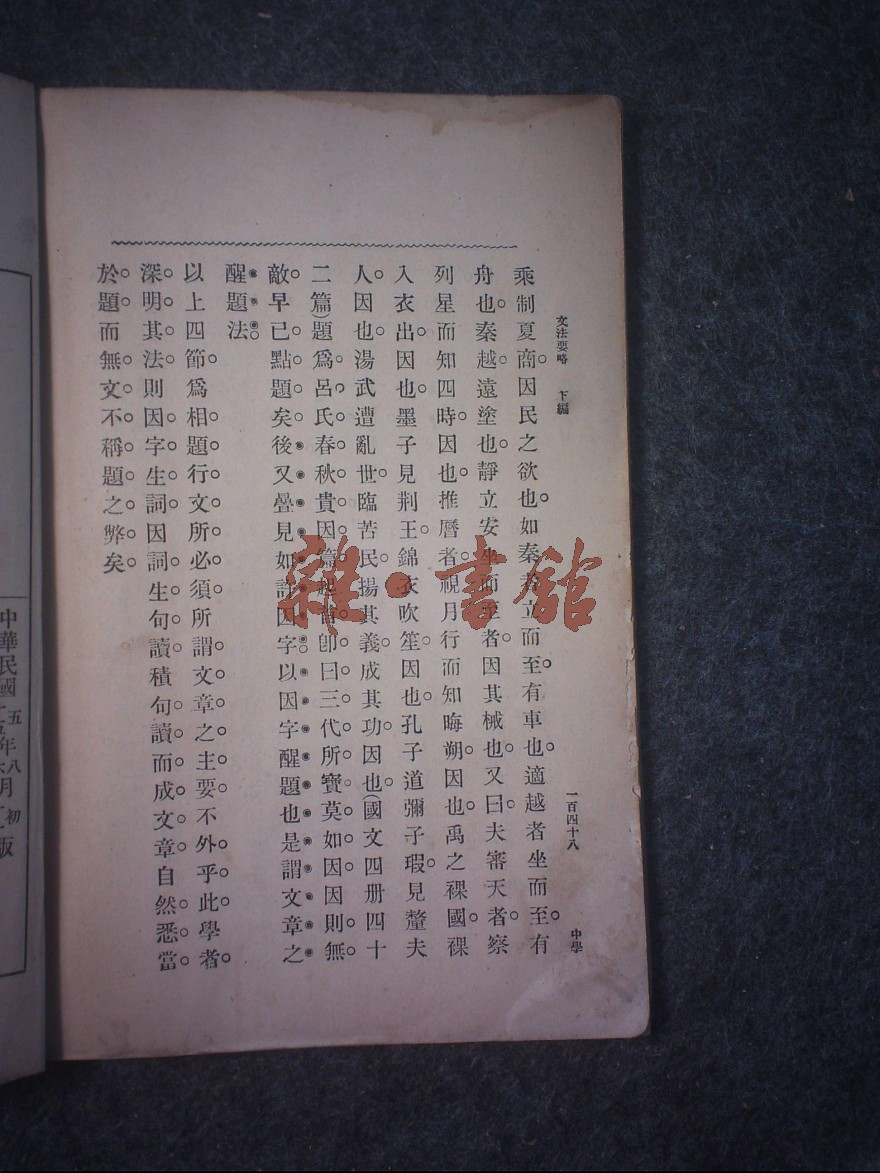 文法要略　下編　一百四十八　中學
乘制夏商因民之欲也。如秦者立而至。有車也。適越者坐而至。有
舟也。秦越遠塗也。靜立安坐而至者。因其械也。又曰。夫審天者。察
列星而知四時。因也。推曆者。視月行而知晦朔。因也。禹之裸國。裸
入衣出。因也。墨子見荆王。錦衣吹笙。因也。孔子道彌子瑕。見釐夫
人。因也。湯武遭亂世。臨苦民。揚其義。成其功。因也。(國文四册四十
二篇)題爲呂氏春秋貴因篇。起首卽曰三代所寶莫如因。因則無
敵。早已點題矣。後又疊見如許因字。以因字醒題也。是謂文章之
醒題法。
以上四節。爲相題行文所必須。所謂文章之主要。不外乎此。學者。
深明其法。則因字生詞。因詞生句讀。積句讀而成文章。自然悉當。
於題。而無文不稱題之弊矣。
雜·書館
中華民國